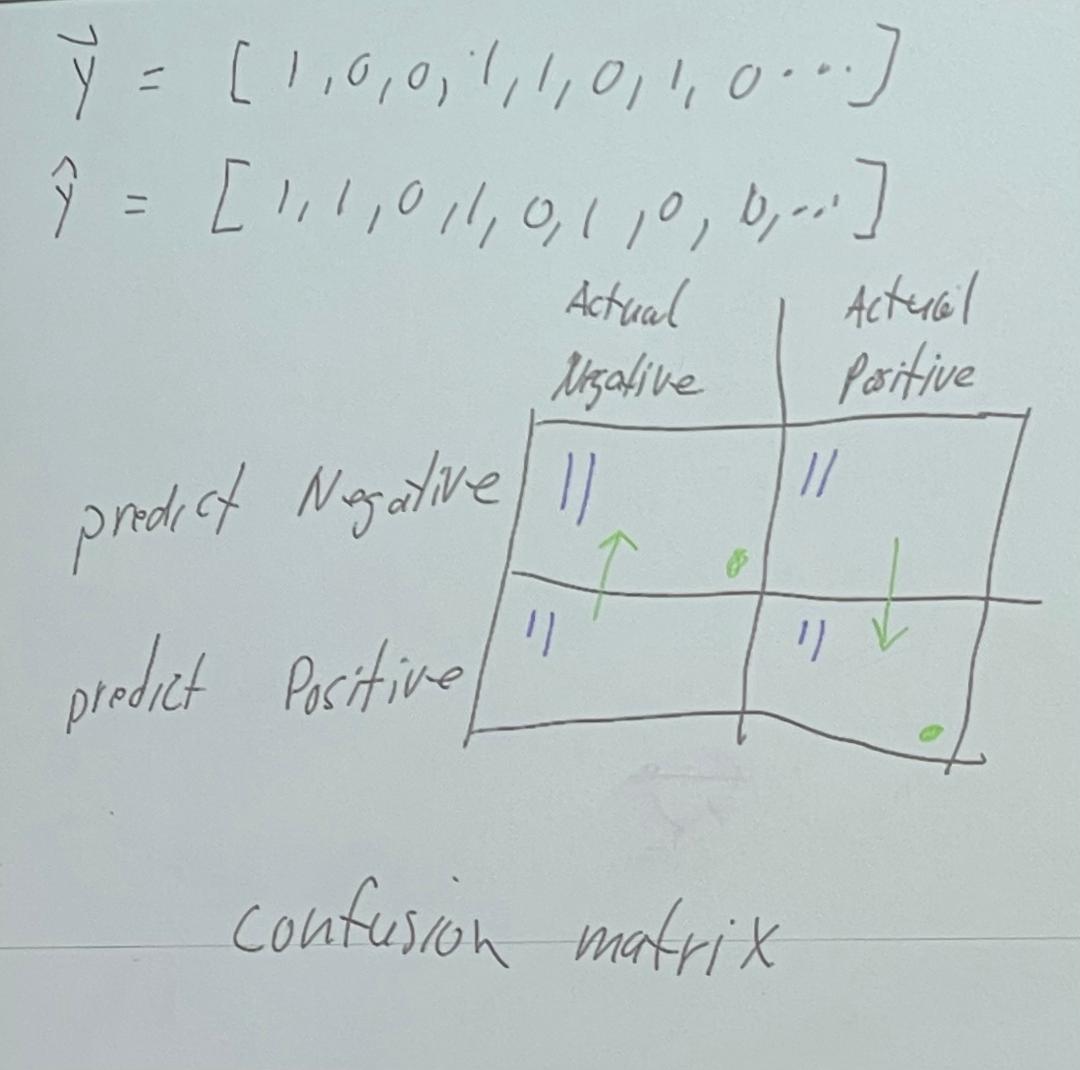 y⃗ = [ 1, 0, 0, 1, 1, 0, 1, 0 ... ]
ŷ = [ 1, 1, 0, 1, 0, 1, 0, 0, ... ]
Actual Actual
Negative Positive
predict Negative || ||
predict Positive || ||
confusion matrix